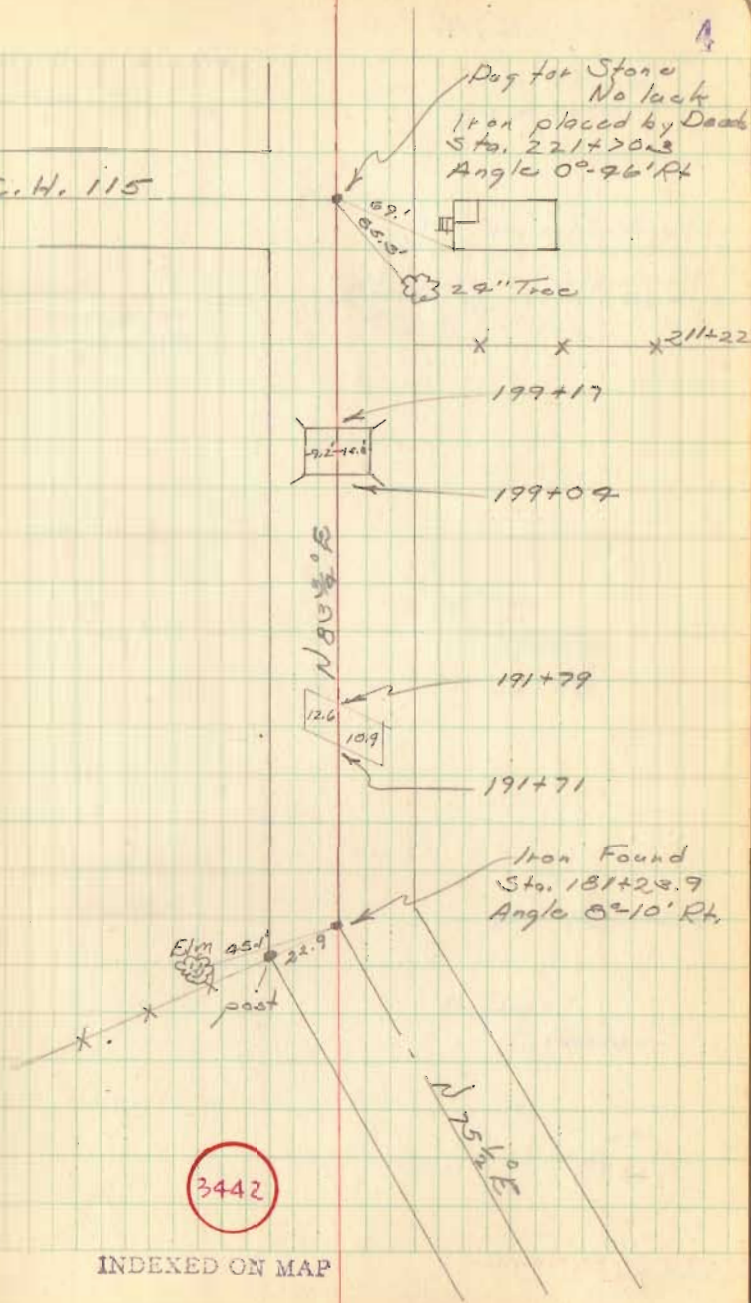 4
Dug for Stone
No luck
Iron placed by Deeds
Sta. 221+70.3
Angle 0°-46' Rt
C.H. 115
69.'
66.3'
24" Tree
211+22
199+17
199+04
N 83¾° E
191+79
12.6
10.9
191+71
Iron Found
Sta. 181+28.9
Angle 8°-10' Rt.
Elm
45.1'
22.9
post
N 75½° E
3442
INDEXED ON MAP